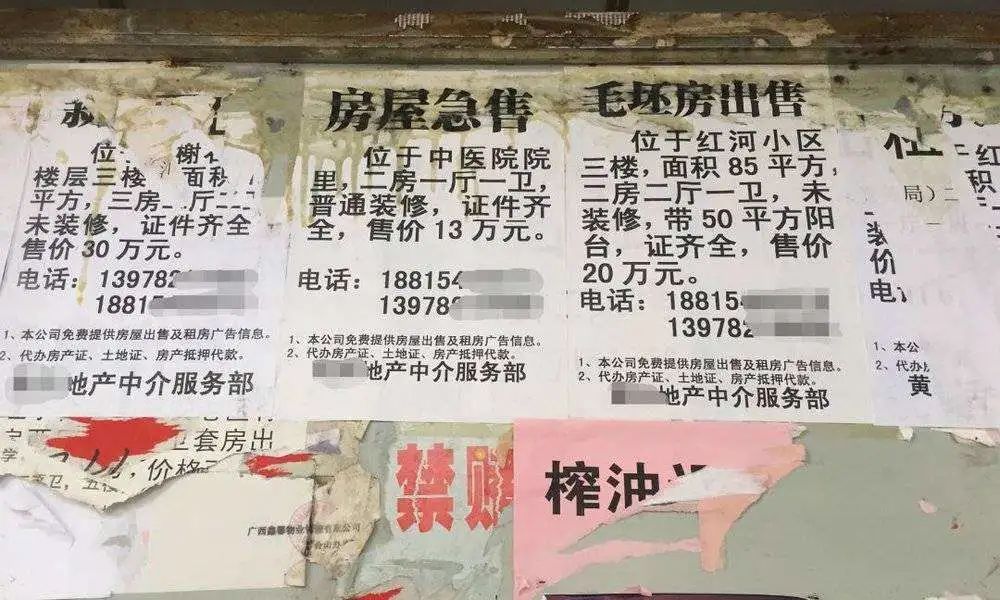 位
榭
楼层三楼 面积
平方，三房 厅二
未装修，证件齐全
售价 30 万元。
电话：139782
1881
1、本公司免费提供房屋出售及租房广告信息。
2、代办房产证、土地证、房产抵押代款。
地产中介服务部
房屋急售
位于中医院院
里，二房一厅一卫，
普通装修，证件齐
全，售价 13 万元。
电话：188154
13978
1、本公司免费提供房屋出售及租房广告信息。
2、代办房产证、土地证、房产抵押代款。
地产中介服务部
毛坯房出售
位于红河小区
三楼，面积 85 平方，
二房二厅一卫，未
装修，带 50 平方阳
台，证齐全，售价
20 万元。
电话：18815
139782
1、本公司免费提供房屋出售及租房广告信息。
2、代办房产证、土地证、房产抵押代款。
地产中介服务部
位
红
局）二
积
装
价
电
1、本公
2、代办
黄
卫套房出
学
价格
广西鑫馨物业 有限公司
禁赌
榨油